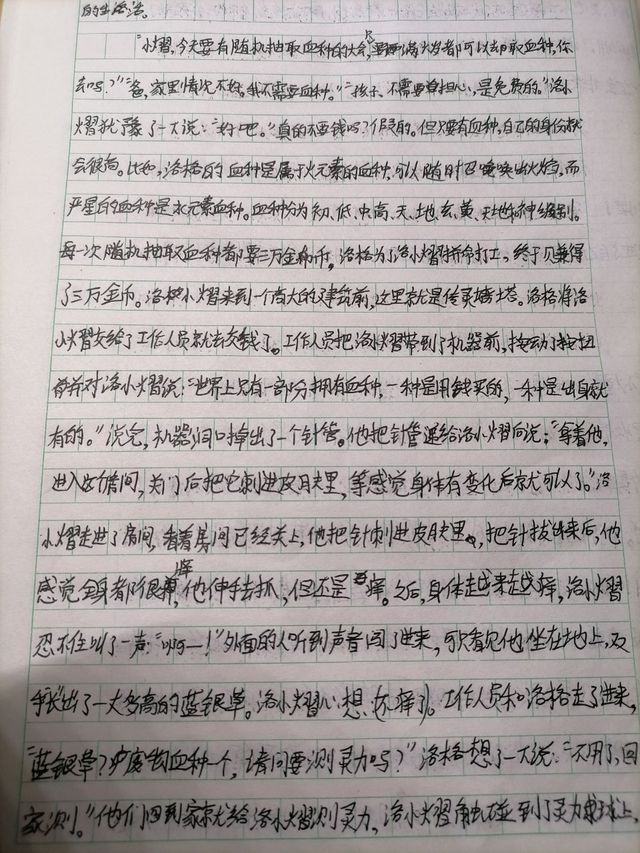 的生活。
"小熠,今天要有随机抽取血种的大会,只要满六岁者都可以去取血种,你
去吗?""爸,家里情况不好,我不需要血种。""孩子,不需要担心,是免费的。"洛小
熠犹豫了一大说:"好吧。"真的不要钱吗?假的。但只要有血种,自己的身份就
会很高。比如,洛格的血种是属于火元素的血种,可以随时召唤出火焰,而
严星的血种是水元素血种。血种分为初、低、中、高、天、地、玄、黄、天地神级别。
每一次随机抽取血种者都要三万金币。洛格为了洛小熠拼命打工,终于只赚得
了三万金币。洛格小熠来到一个高大的建筑前,这里就是传灵塔。洛格将洛
小熠交给了工作人员就去交钱了。工作人员把洛小熠带到了机器前,按动了按扭
并对洛小熠说:"世界上只有一部分拥有血种,一种是用钱买的,一种是出身就
有的。"说完,机器洞口掉出了一个针管。他把针管递给洛小熠说:"拿着他,
进入房间,关门后把它刺进皮肤里,等感觉身体有变化后就可以了。"洛
小熠走进了房间,看着房间已经关上,他把针刺进皮肤里,把针拔出来后,他
感觉全身都很痒,他伸手去抓,但还是痒。之后,身体越来越痒,洛小熠
忍不住叫了一声:"啊—!"外面的人听到声音闯了进来,可只看见他坐在地上,双
手长出了一大多高的蓝银草。洛小熠心想,不痒了。工作人员和洛格走了进来,
"蓝银草?废物血种一个,请问要测灵力吗?"洛格想了一大说:"不用了,回
家测。"他们回到家就给洛小熠测灵力,洛小熠触碰到了灵力球上,